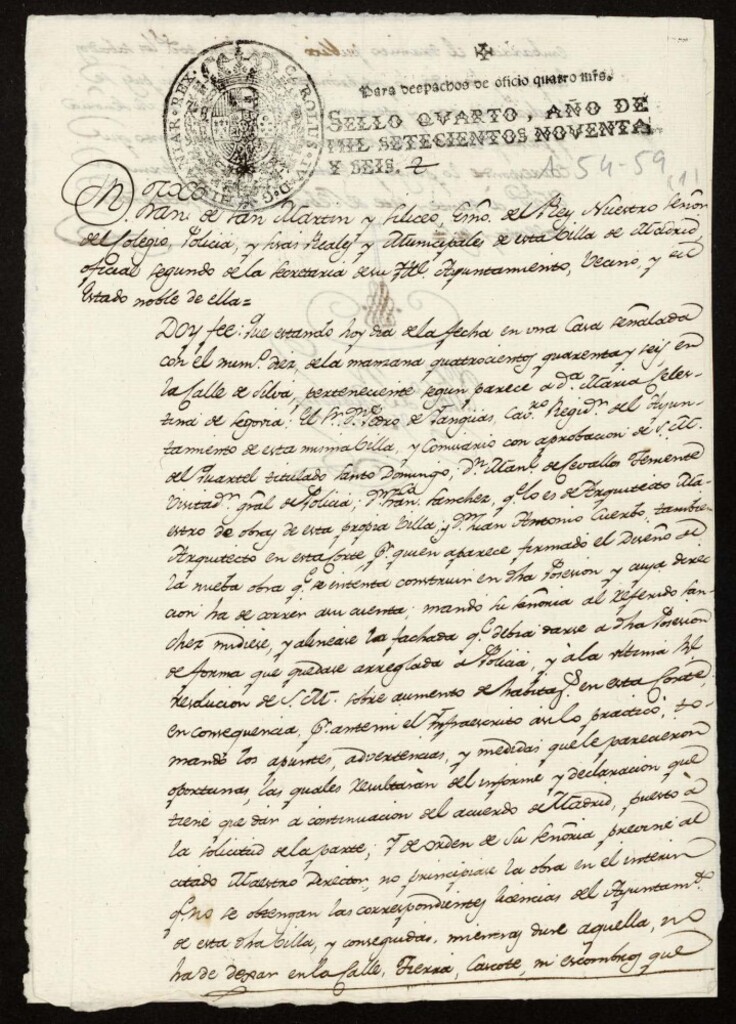 CAROLUS IV D G HISPANIAR REX
Para despachos de oficio quatro mrs.
SELLO QVARTO, AÑO DE
MIL SETECIENTOS NOVENTA
Y SEIS.
1-54-59
(1)
Fran. de San Martin y Siliceo, Esno. del Rey Nuestro Señor
del Colegio, Policia, y Sisas Reales y Municipales de esta Villa de Madrid,
oficial segundo de la Secretaria de su Ayuntamiento, Vecino, y
Estado noble de ella=
Doy fee: Que estando hoy dia de la fecha en una Casa señalada
con el numº. diez, de la manzana quatrocientos quarenta y seis en
la Calle de Silva, perteneciente segun parece a dª. Maria Celes-
tina de Segovia; El Sr. Dn. Pedro de Cavro. Regidr. del Ayun-
tamiento de esta misma Villa, y Comisario con aprobacion de S. M.
del Quartel titulado Santo Domingo; Dn. Manl. de Cevallos Teniente
Visitadr. gral de Policia; Dn. Franco. Sanchez, q. lo es de Arquitecto Ma-
estro de obras de esta propia Villa; y Dn. Juan Antonio Cuerbo, tambie
Arquitecto en esta Corte, pr. quien aparece firmado el Diseño de
la nueba obra q. se intenta construir en dha Posesion y cuya direc
cion ha de correr a su cuenta; mando su señoria al referido San-
chez midiese, y alinease la fachada q. debia darse a dha Posesion
de forma que quedase arreglada a Policia, y à la ultima Rl.
resolucion de S. M. sobre aumento de habitaçs. en esta Corte,
en consequencia, pr. ante mi el Infraescrito asi lo practicò, to-
mando los apuntes, advertencias, y medidas que le parecieron
oportunas, las quales resultaràn del informe y declaracion que
tiene que dar a continuacion del acuerdo de Madrid, puesto à
la solicitud de la parte; Y de orden de su señoria previne al
citado Maestro Director, no principiase la obra en el interin
q. no se obtengan las correspondientes licencias del Ayuntamto.
de esta dha Villa, y conseguidas, mientras dure aquella, no
ha de dejar en la Calle, Tierra, Cascote, ni escombros que